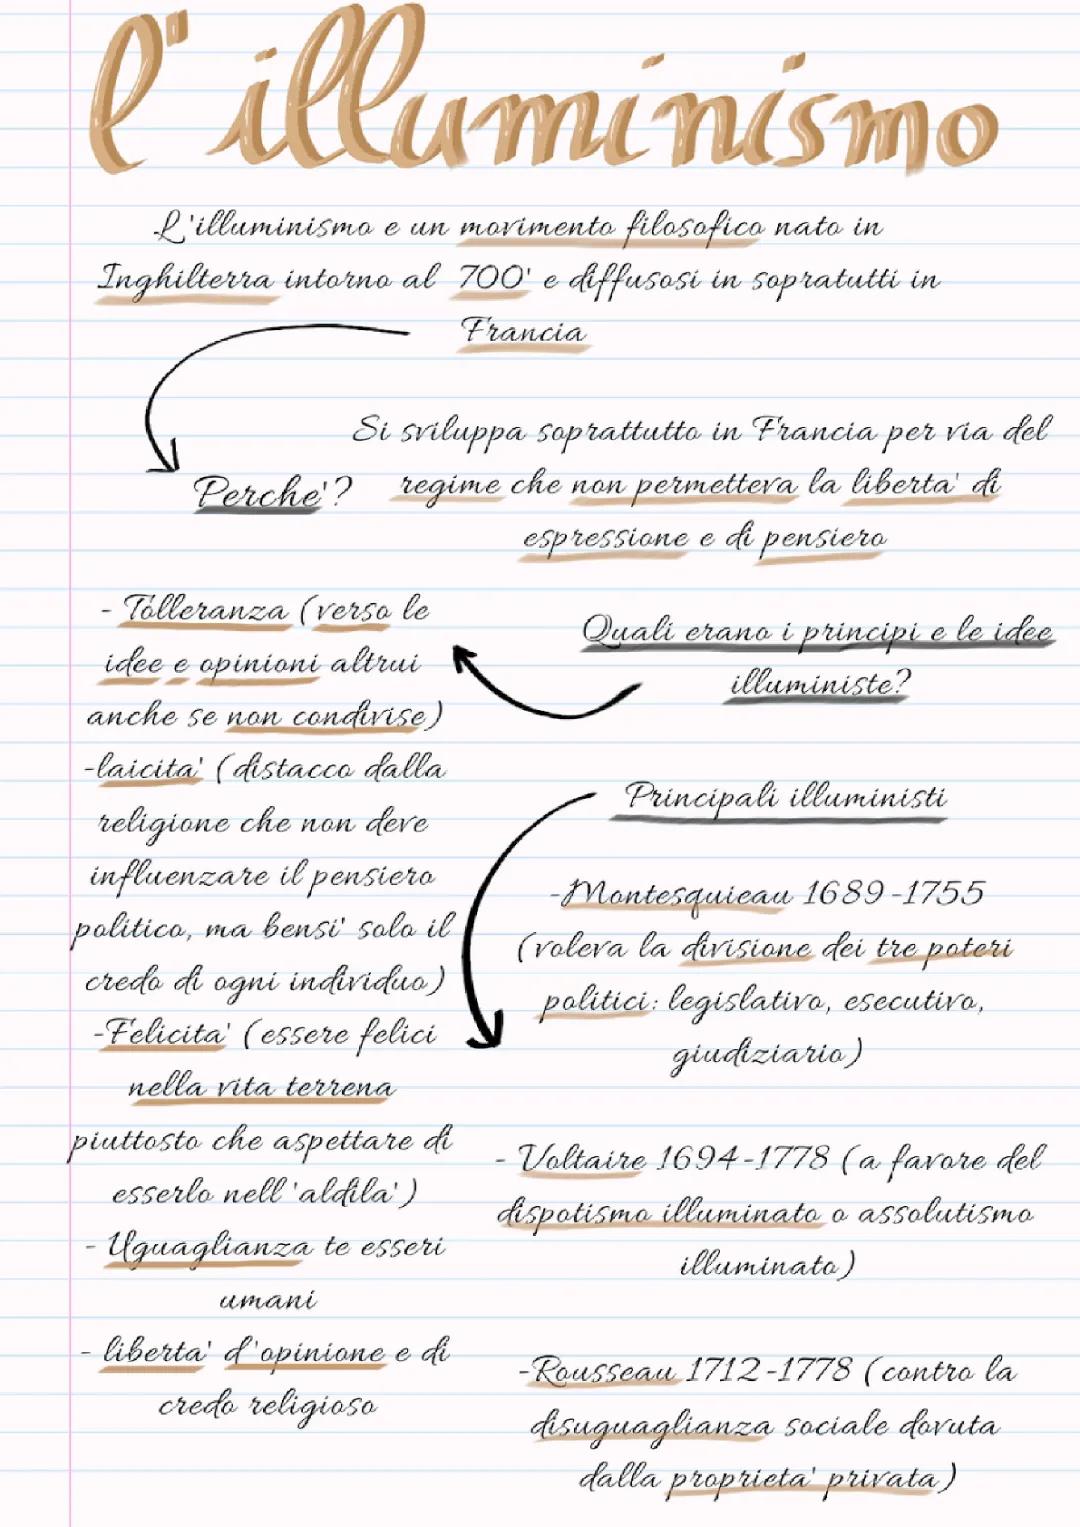 l'illuminismo
L'illuminismo e un movimento filosofico nato in
Inghilterra intorno al 700' e diffusosi in sopratutti in
Francia
Si sviluppa soprattutto in Francia per via del
Perche'? regime che non permetteva la liberta' di
espressione e di pensiero
- Tolleranza (verso le
idee e opinioni altrui
anche se non condivise)
-laicita' (distacco dalla
religione che non deve
influenzare il pensiero
politico, ma bensi' solo il
credo di ogni individuo)
-Felicita' (essere felici
nella vita terrena
piuttosto che aspettare di
esserlo nell'aldila')
- Uguaglianza te esseri
umani
- liberta' d'opinione e di
credo religioso
Quali erano i principi e le idee
illuministe?
Principali illuministi
-Montesquieau 1689-1755
(voleva la divisione dei tre poteri
politici: legislativo, esecutivo,
giudiziario)
- Voltaire 1694-1778 (a favore del
dispotismo illuminato o assolutismo
illuminato)
-Rousseau 1712-1778 (contro la
disuguaglianza sociale dovuta
dalla proprieta' privata)